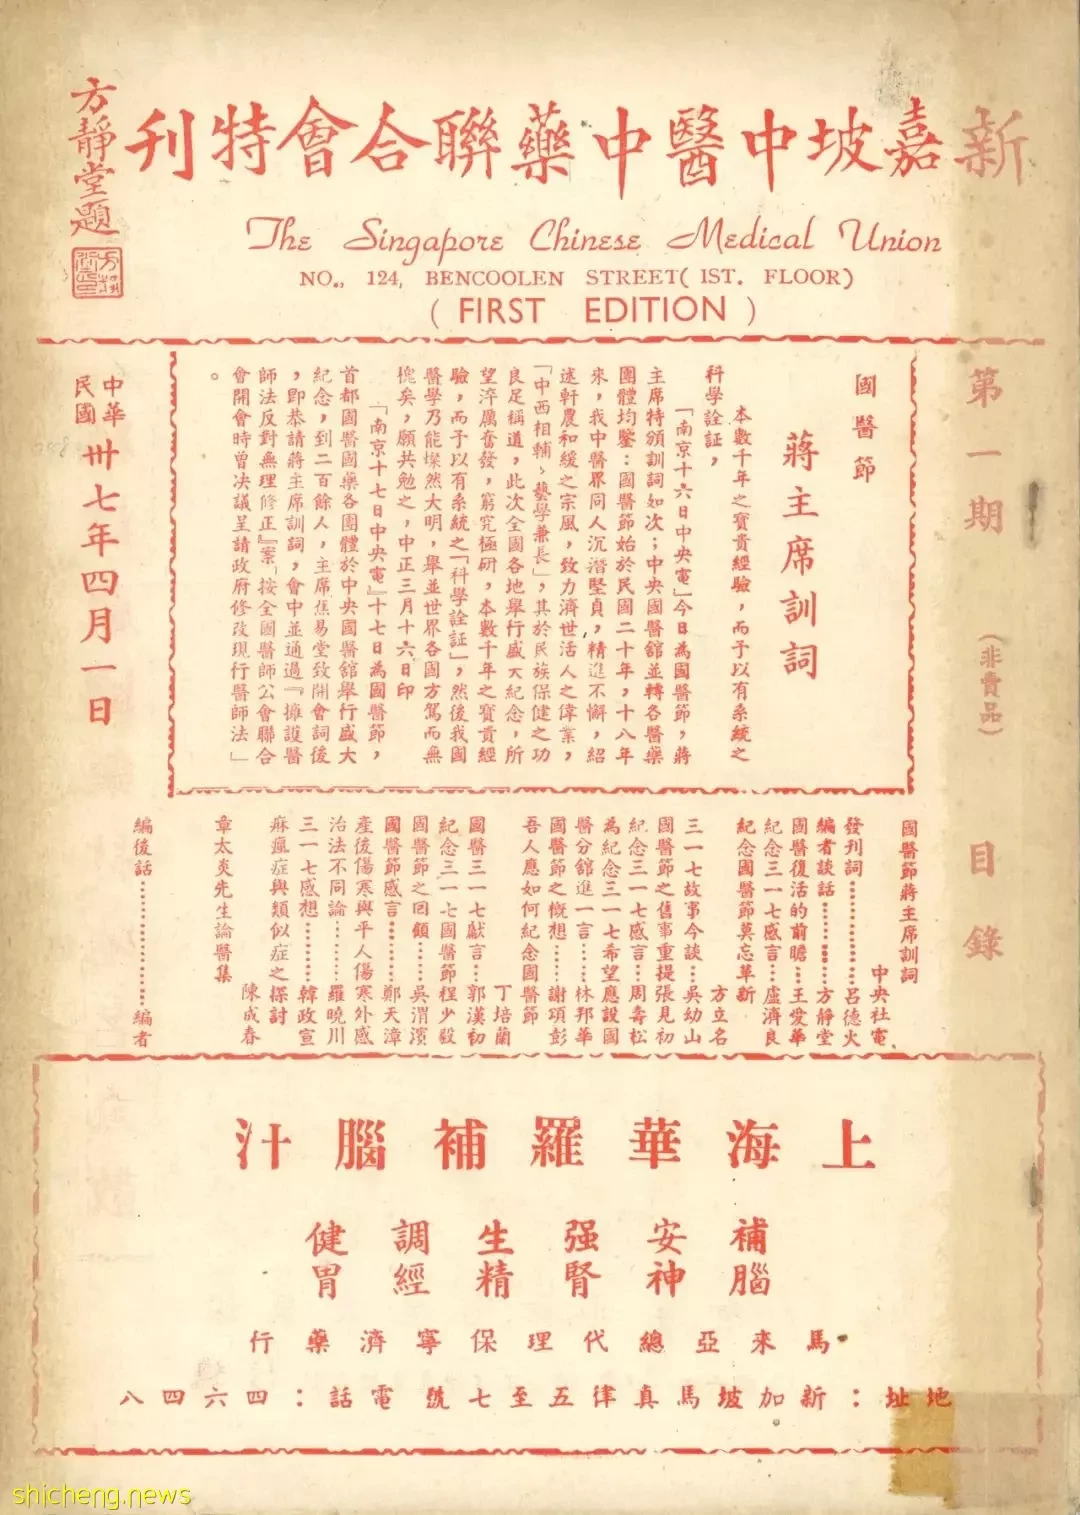 新嘉坡中醫中藥聯合會特刊
方靜堂題
The Singapore Chinese Medical Union
NO., 124, BENCOOLEN STREET( IST. FLOOR)
( FIRST EDITION )
第一期
(非賣品)
目錄
國醫節
蔣主席訓詞
本數千年之寶貴經驗，而予以有系統之
科學詮証，
「南京十六日中央電」今日為國醫節，蔣
主席特頒訓詞如次；中央國醫舘並轉各醫藥
團體均鑒：國醫節始於民國二十年，十八年
來，我中醫界同人沉潛堅貞，精進不懈，紹
述軒農和緩之宗風，致力濟世活人之偉業，
「中西相輔、藝學兼長」，其於民族保健之功
良足稱道，此次全國各地舉行盛大紀念，所
望淬厲奮發，窮究極研，本數千年之寶貴經
驗，而予以有系統之「科學詮証」，然後我國
醫學乃能燦然大明，舉並世界各國方駕而無
愧矣，願共勉之，中正三月十六日印
「南京十七日中央電」十七日為國醫節，
首都國醫國藥各團體於中央國醫舘舉行盛大
紀念，到二百餘人，主席焦易堂致開會詞後
，即恭請蔣主席訓詞，會中並通過『擁護醫
師法反對無理修正』案，按全國醫師公會聯合
會開會時曾决議呈請政府修改現行醫師法」
。
中華
民國
卅七年四月一日
國醫節蔣主席訓詞
中央社電
發刊詞………呂德火
編者談話………方靜堂
國醫復活的前瞻…王愛華
紀念三一七感言…盧濟良
紀念國醫節莫忘革新
方立名
三一七故事今談…吳幼山
國醫節之舊事重提張見初
紀念三一七感言…周壽松
為紀念三一七希望應設國
醫分舘進一言……林邦華
國醫節之概想…謝項彭
吾人應如何紀念國醫節
丁培蘭
國醫三一七獻言…郭漢初
紀念三一七國醫節程少毅
國醫節之回顧…吳渭濱
國醫節感言……鄭天漳
產後傷寒與平人傷寒外感
治法不同論………羅曉川
三一七感想……韓政宣
痳瘋症與類似症之探討
陳成春
章太炎先生論醫集
編後話………………編者
上海華羅補腦汁
補腦
安神
强腎
生精
調經
健胃
馬來亞總代理保寧濟藥行
地址：新加坡馬真律五至七號電話：四六四八
shicheng.news